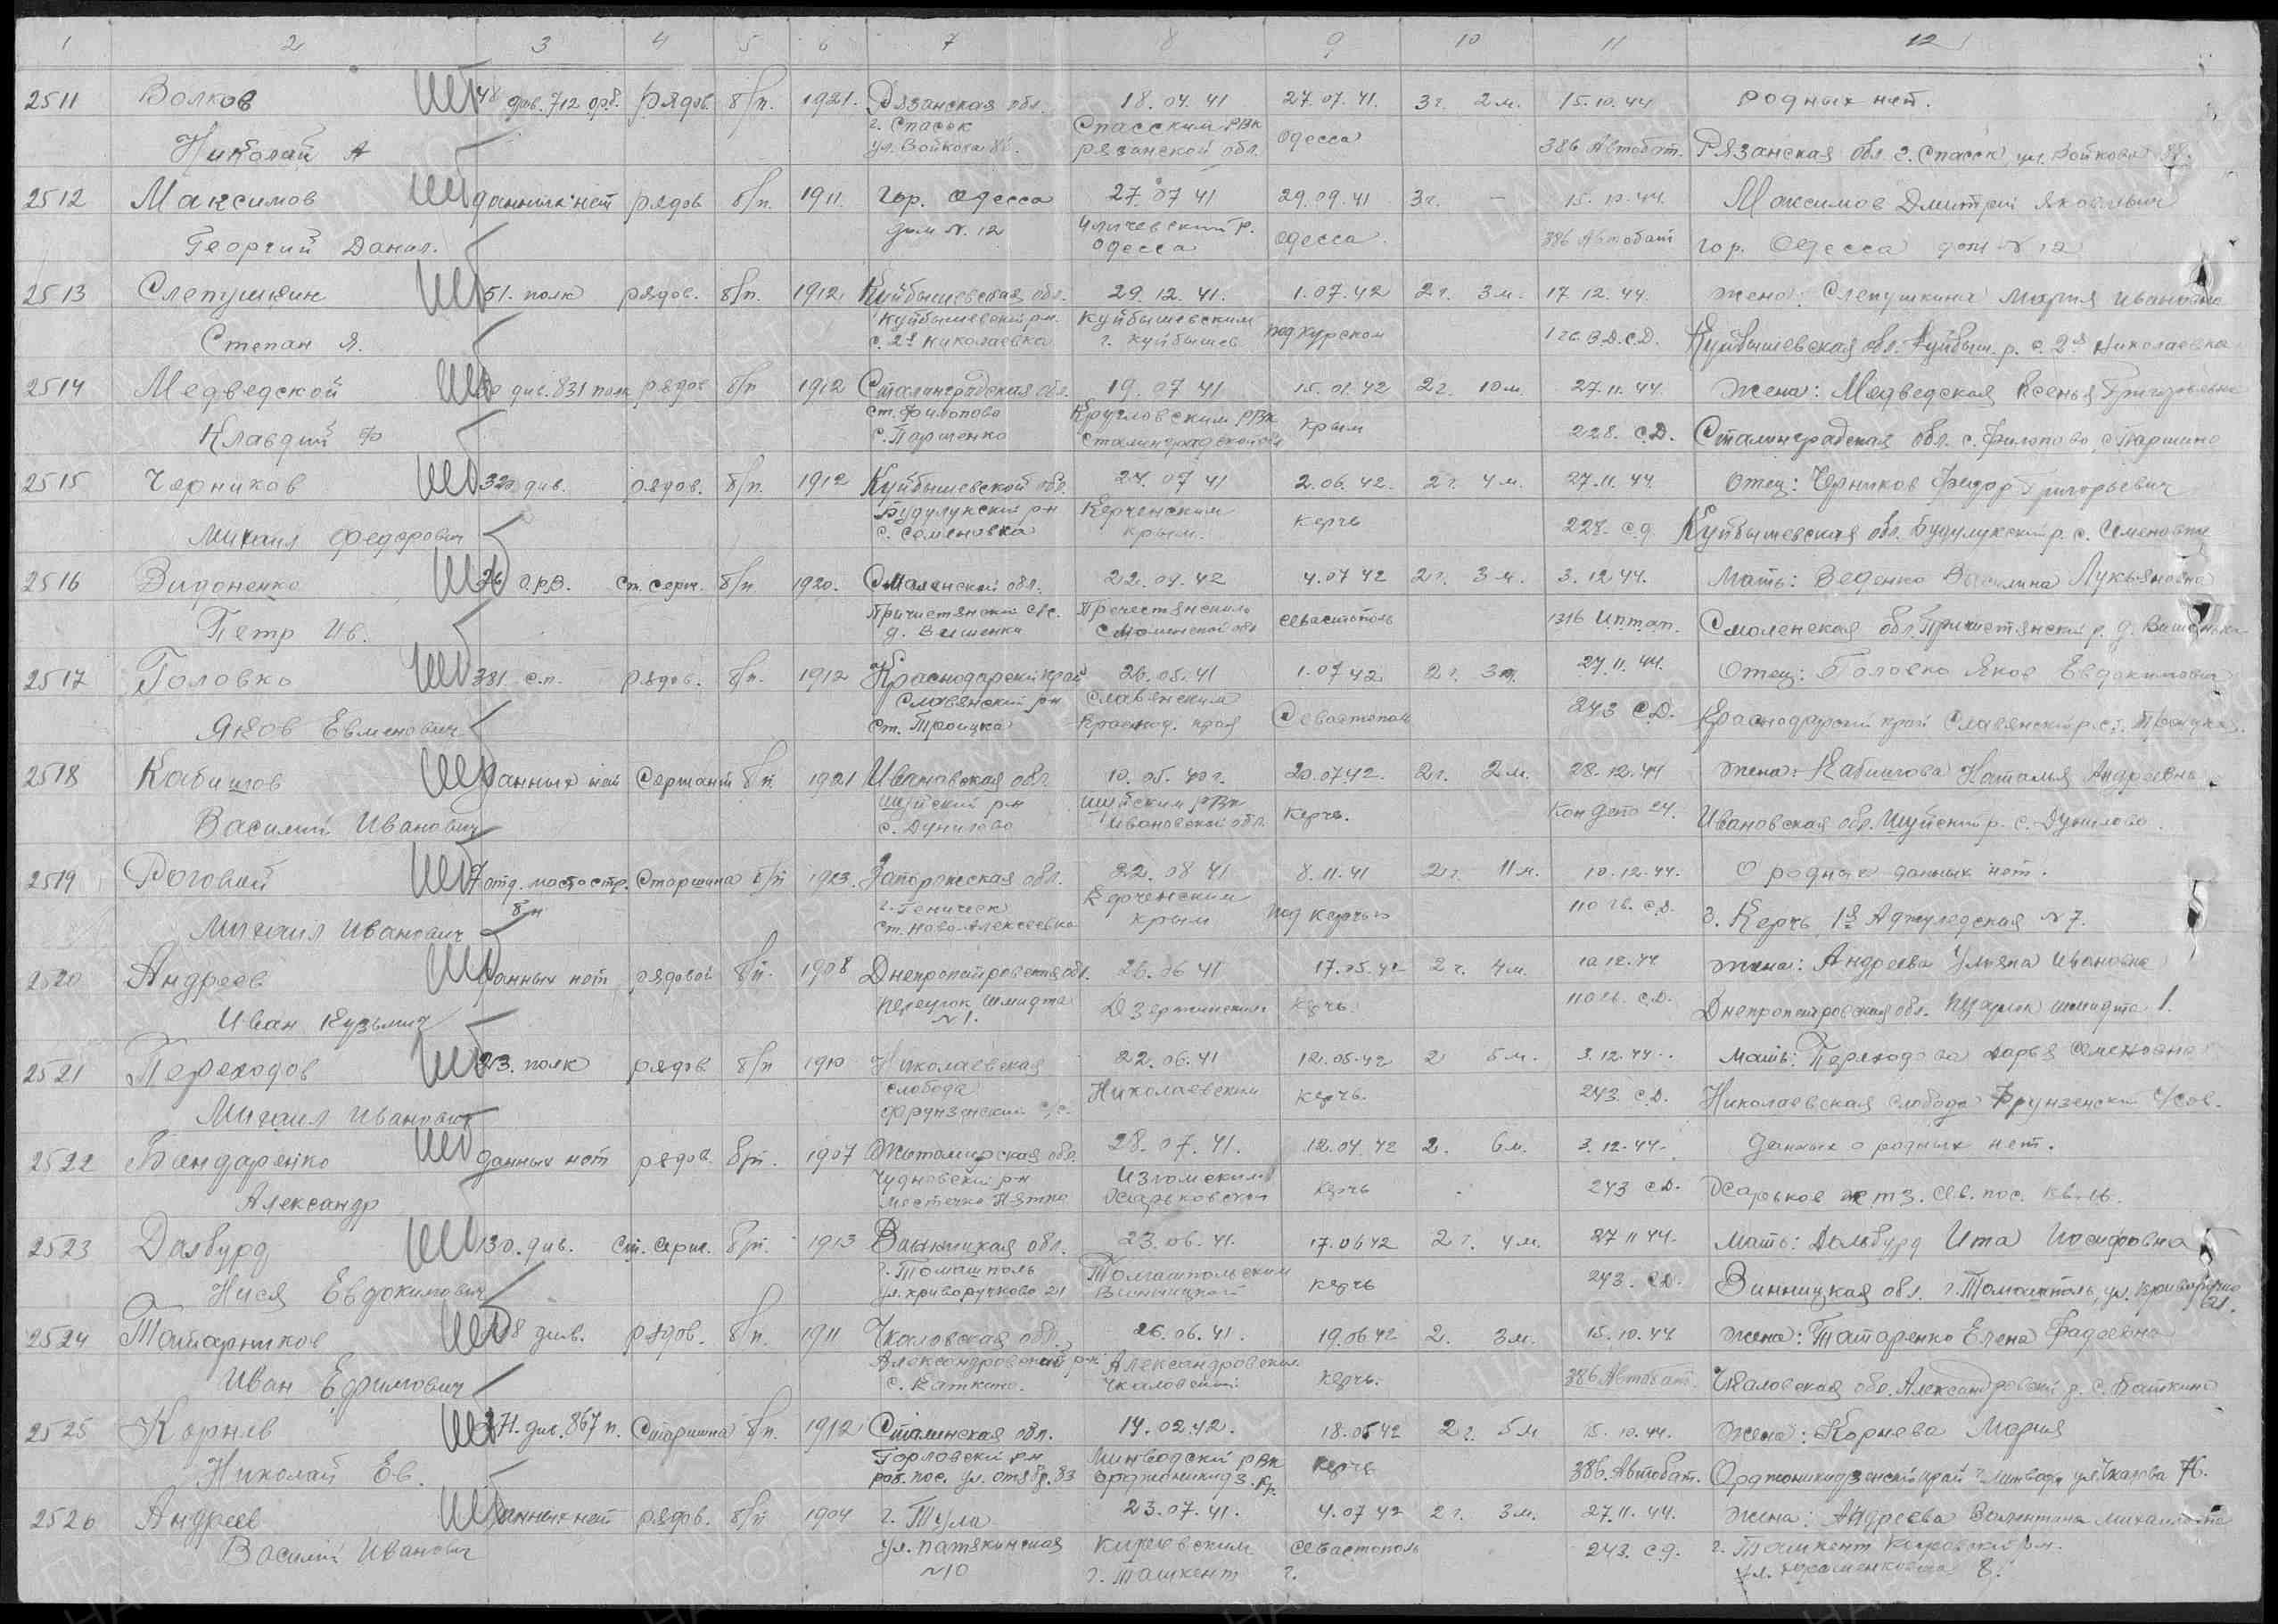 1 2 3 4 5 6 7 8 9 10 11 12
2511 Волков 48 див. 712 рядов. б/п. 1921. Рязанская обл. 18.04.41 27.07.41. 3г. 2м. 15.10.44 родных нет.
Николай А г. Спасск ул. Войкова 88. Спасским РВК рязанской обл. Одесса 386 Автобат. Рязанская обл. г. Спасск, ул. Войкова 88.
2512 Максимов данных нет рядов б/п. 1911. гор. Одесса 27.07 41 29.09.41 3г. — 15.10.44. Максимов Дмитрий Яковлевич
Георгий Данил. дом N. 12 Ильичевский р. Одесса Одесса. 386 Автобат гор. Одесса дом N 12
2513 Слепушкин 51. полк рядов. б/п. 1912 Куйбышевская обл. 29.12.41. 1.07.42 2г. 3м. 17.12.44. жена: Слепушкина Мария Ивановна
Степан Я. Куйбышевский р-н. с. 2я Николаевка Куйбышевским г. Куйбышев под Курском 1 гв. В.Д.С.Д. Куйбышевская обл. Куйбыш. р. с. 2я Николаевка
2514 Медведской див. 831 полк рядов б/п 1912 Сталинградская обл. 19.07 41 15.01.42 2г. 10м. 27.11.44. жена: Медведская Ксенья Григорьевна
Клавдий Ф ст. Филопово с. Паршенко Кругловским РВК Сталинградской обл Крым 228. С.Д. Сталинградская обл. с. Филопово, с Паршино
2515 Черников 320 див. рядов. б/п. 1912 Куйбышевской обл. 24.07 41 2.06.42. 2г. 4м. 27.11.44. отец: Черников Федор Григорьевич
Михаил Федорович Будулукский р-н с. Семеновка Керченским Крым. Керчь 228. С.Д. Куйбышевская обл. Будулукский р. с. Семеновка
2516 Видоненко 76 О.Р.В. ст. серж. б/п. 1920. Смоленской обл. 22.04.42 4.07 42 2г. 3м. 3.12.44. мать: Веденко Василина Лукьяновна
Петр Ив. Причистянский с/с. д. Вишенки Пречестянским Смоленской обл Севастополь 1316 Иптап. Смоленская обл. Причистянский р. д. Вишенька
2517 Головко 381. с.п. рядов. б/п. 1912 Краснодарский край 26.05.41 1.07 42 2г. 3м. 27.11.44. отец: Головко Яков Евдокимович
Яков Евменович Славянский р-н ст. Троицка Славянским Краснод. края Севастополь 243 С.Д. Краснодарский край Славянский р. ст. Троицка.
2518 Кабишов данных нет Сержант б/п. 1921 Ивановская обл. 10.05.40г. 20.07 42. 2г. 2м. 28.12.44 жена: Кабишова Наталья Андреевна
Василий Иванович Шуйский р-н с. Дунилово Шуйским РВК Ивановской обл. Керчь. Кон депо 24. Ивановская обл. Шуйский р. с. Дунилово.
2519 Роговий 7 отд. мостостр. Старшина б/п 1913. Запорожская обл. 22.08 41 8.11.41 2г. 11м. 10.12.44. о родных данных нет.
Михаил Иванович б-н г. Геническ ст. Ново-Алексеевка Керченским Крым под Керчью 110 гв. С.Д. г. Керчь 1я Аджулядская N 7.
2520 Андреев данных нет рядовой б/п. 1908 Днепропетровская обл. 26.06 41 17.05.42 2г. 4м. 10 12.44 жена: Андреева Ульяна Ивановна
Иван Кузьмич переулок Шмидта N 1. Дзержинским Керчь. 110 гв. С.Д. Днепропетровская обл. переулок Шмидта 1.
2521 Переходов 23. полк рядов б/п 1910 Николаевская 22.06.41 12.05.42 2 5м. 3.12.44.. мать: Переходова Дарья Семеновна
Михаил Иванович слобода Фрунзенский с/с. Николаевским Керчь. 243. С.Д. Николаевская слобода Фрунзенский с/сов.
2522 Бандаренко данных нет рядов. б/п. 1907 Житомирская обл. 28.07.41. 12.04.42 2. 6м. 3.12.44. данных о родных нет.
Александр Чудновский р-н местечко Пятка Изюмским Харьковской Керчь 243 С.Д. Харьков хтз. сев. пос. кв. 16.
2523 Далбурд 130. див. Ст. серж. б/п. 1913 Винницкая обл. 23.06.41. 17.06 42 2г. 4м. 27 11 44. мать: Дальбурд Ита Иосифовна
Нися Евдокимович г. Томашполь ул. Криворучково 21 Томашпольским Винницкой Керчь 243. С.Д. Винницкая обл. г. Томашполь, ул. Криворучко 21.
2524 Татарников див. рядов. б/п. 1911 Чкаловская обл. 26.06.41. 19.06 42 2. 3м. 15.10.44 жена: Татаренко Елена Фадеевна
Иван Ефимович Александровский р-н с. Каткино. Александровским Чкаловской Керчь. 386 Автобат. Чкаловская обл. Александровский р. с. Каткино
2525 Корнев 271. див. 867 п. Старшина б/п. 1912 Сталинская обл. 14.02.42. 18.05 42 2г. 5м 15.10.44. жена: Корнева Мария
Николай Ев. Горловский р-н раб. пос. ул. Октябр. 83 Минводский РВК Орджоникидз. кр. Керчь 386. Автобат. Орджоникидзенский край г. Минводы ул. Чкалова 76.
2526 Андреев данных нет рядов. б/п 1904 г. Тула 23.07.41. 4.07 42 2г. 3м. 27.11.44. жена: Андреева Валентина Михайловна
Василий Иванович ул. Патякинская N 10 Кировским г. Ташкент Севастополь г. 243. С.Д. г. Ташкент Кировский р-н. ул. 8.